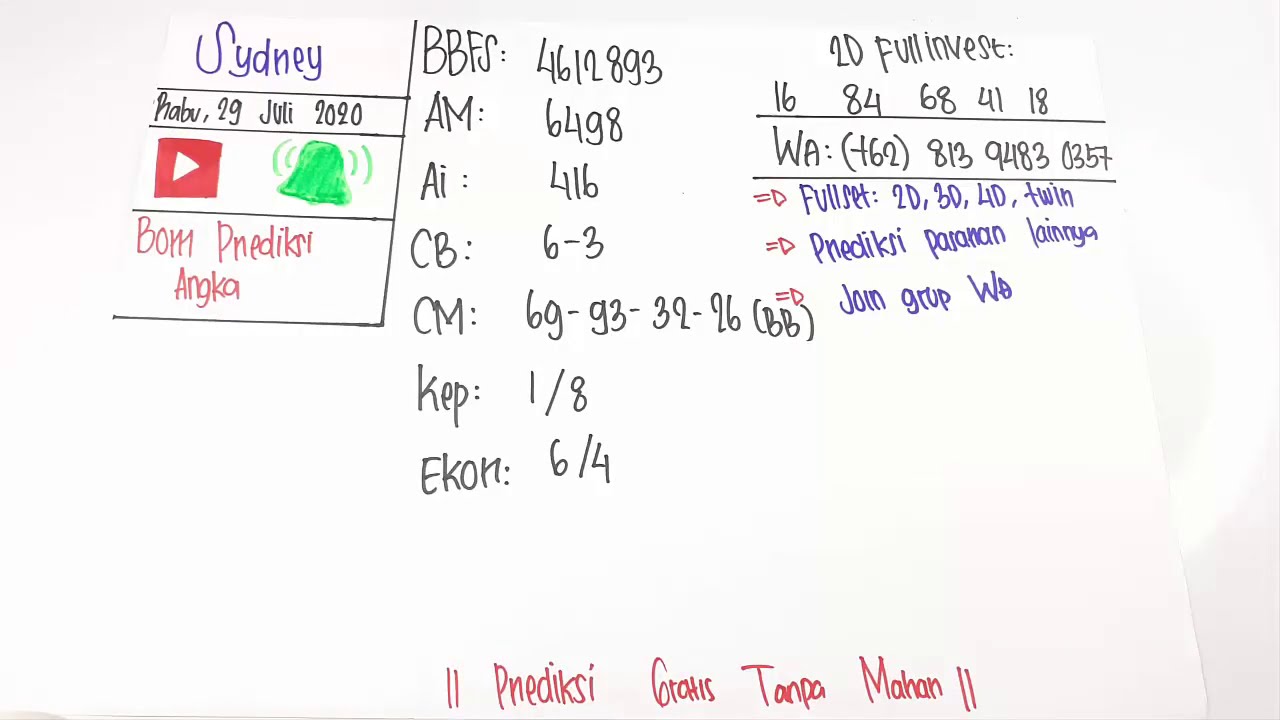 Sydney
Rabu, 29 Juli 2020
Bom Prediksi
Angka
BBFS: 4612893
AM: 6498
Ai: 416
CB: 6-3
CM: 69-93-32-26 (BB)
Kep: 1/8
Ekor: 6/4
2D Full invest:
16 84 68 41 18
WA: (+62) 813 9483 0357
⇒ Fullset: 2D, 3D, 4D, twin
⇒ Prediksi pasaran lainnya
⇒ Join grup WA
|| Prediksi Gratis Tanpa Mahar ||